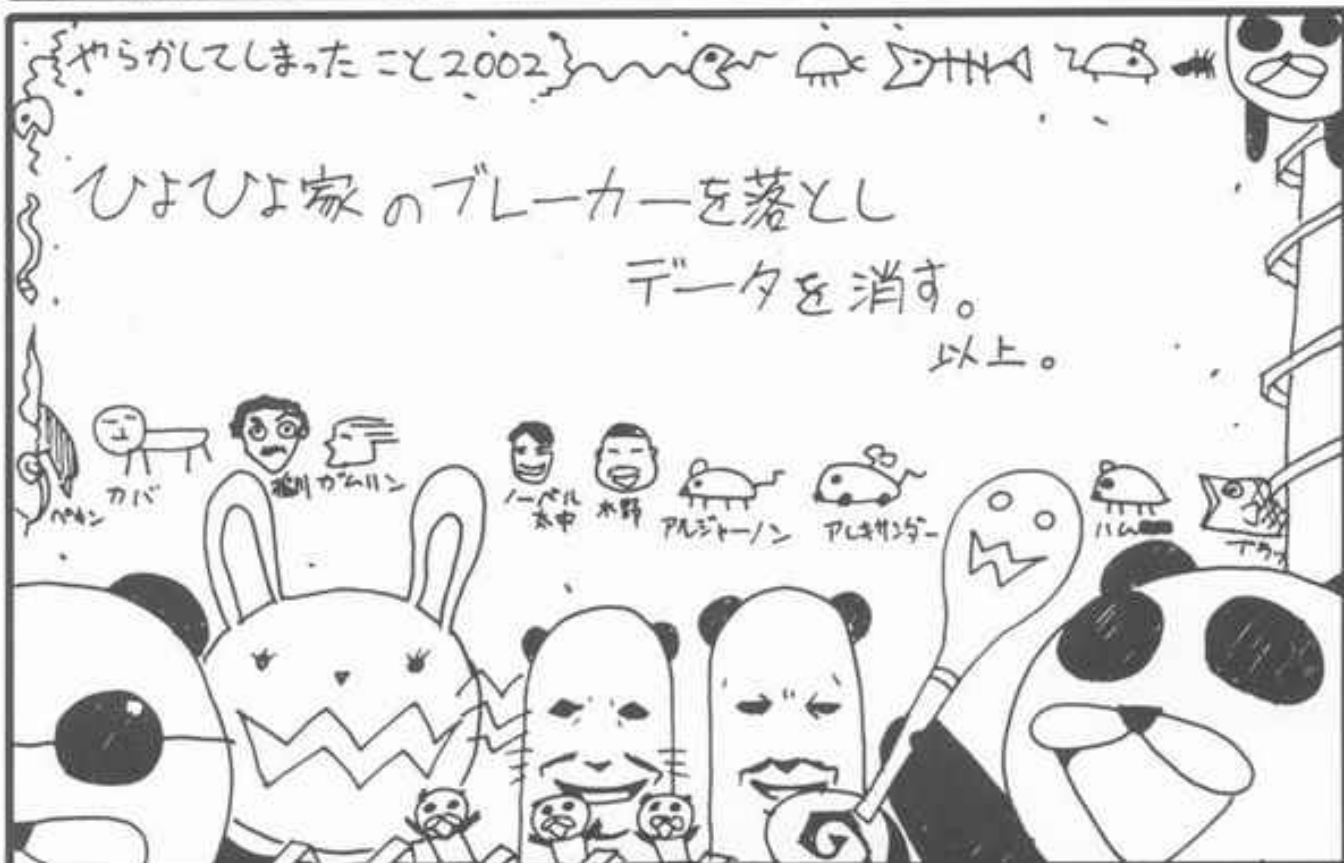 やらかしてしまったこと2002
ひよひよ家のブレーカーを落とし
データを消す。
以上。
ペガン
カバ
堀川
ガムリン
ノーベル
太中
水野
アルジャーノン
アレキサンダー
ハム